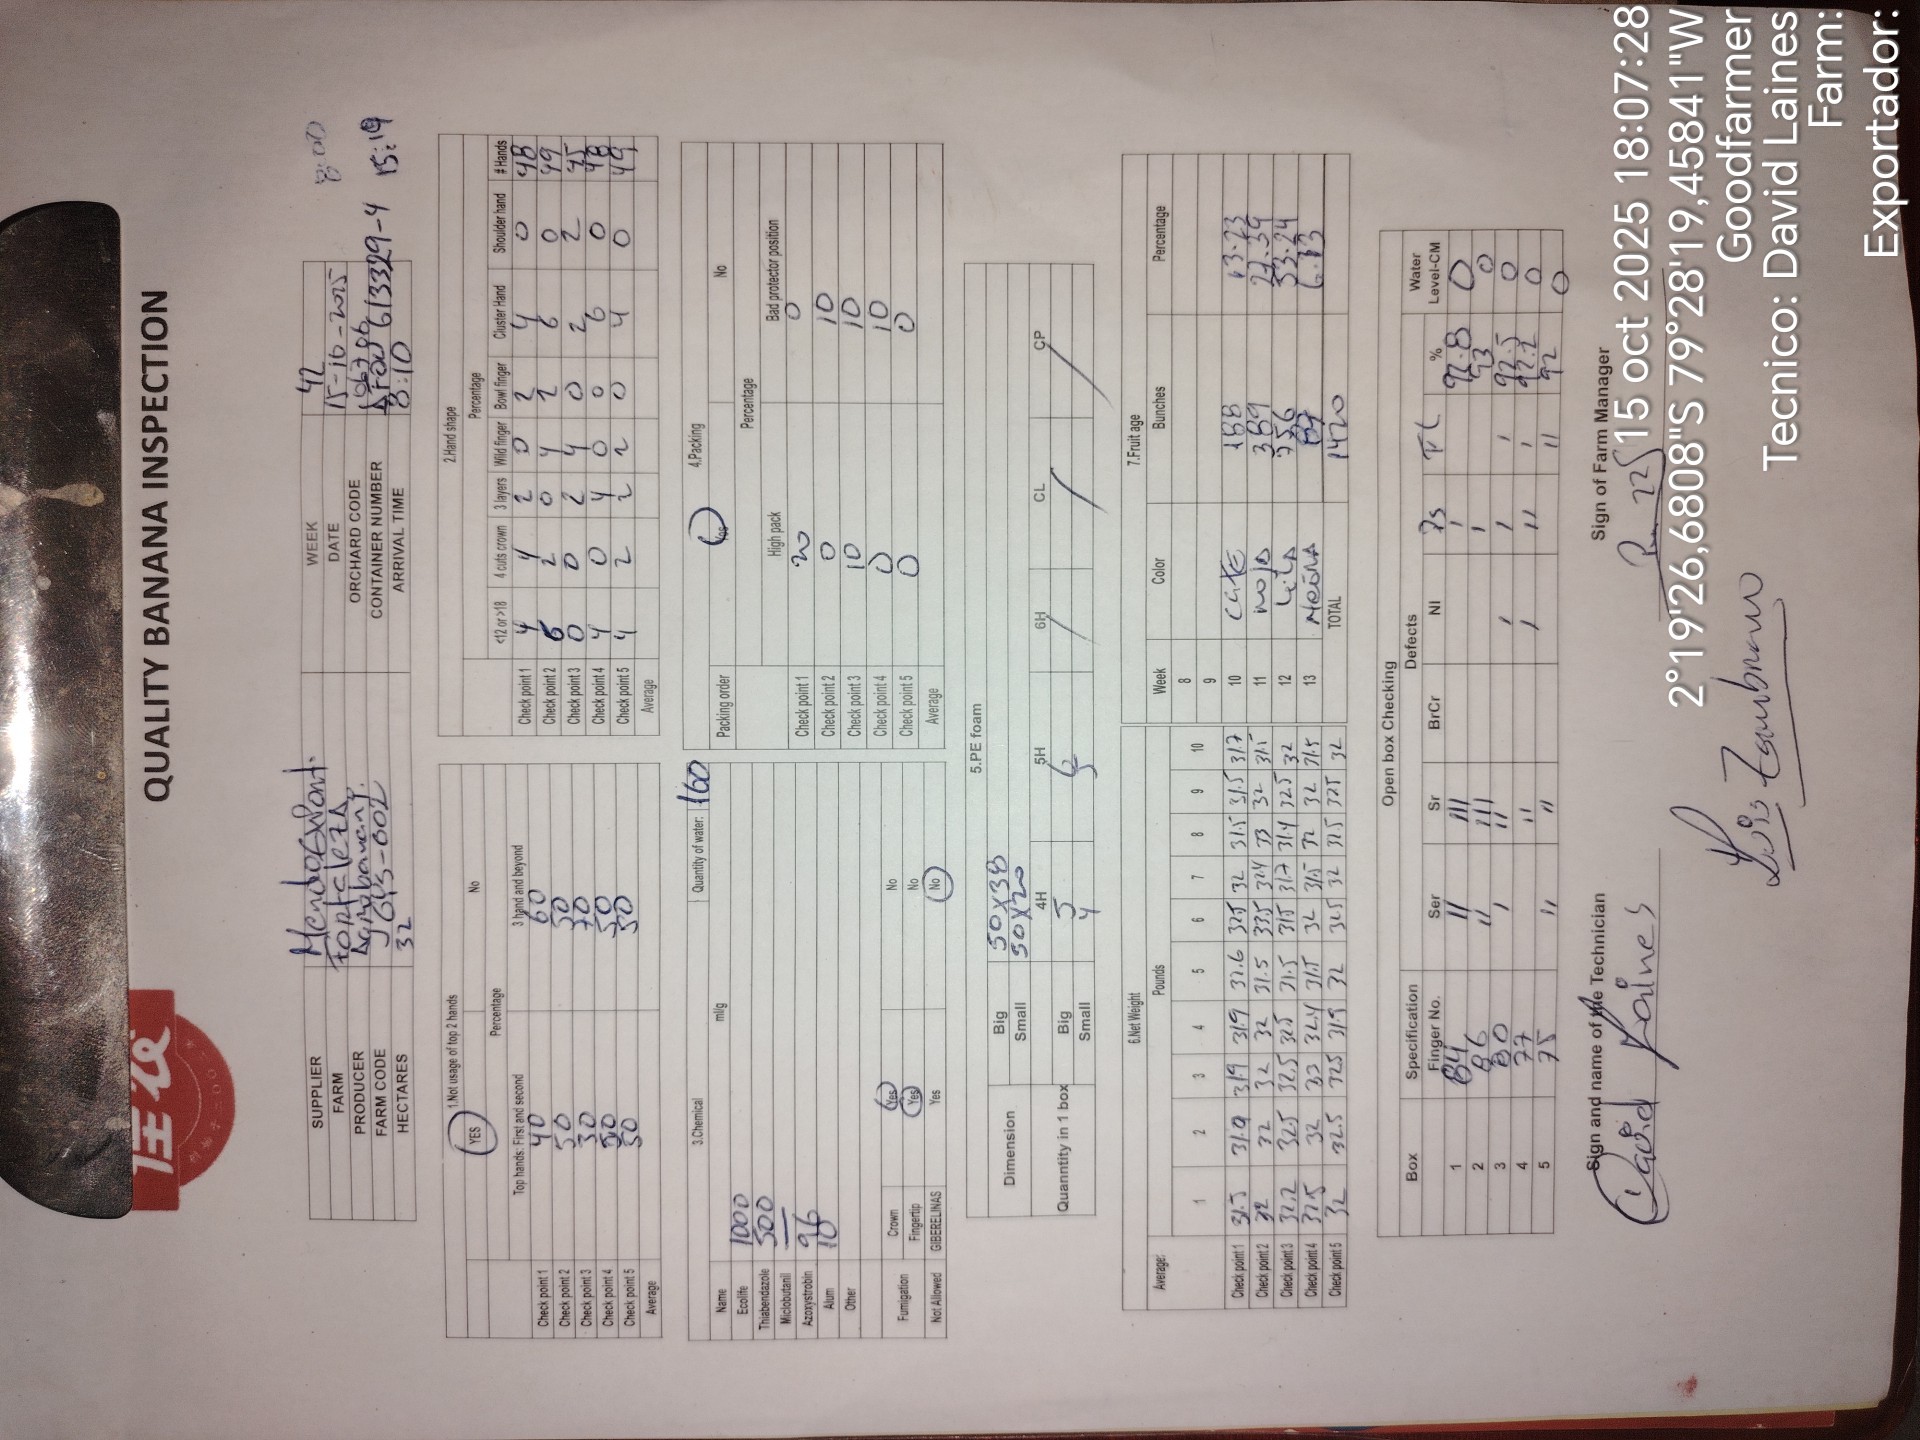 佳农
QUALITY BANANA INSPECTION
SUPPLIER MendoExport. WEEK 42
8:00
FARM FortaleZA DATE 15-10-2025
PRODUCER Agrobanany. ORCHARD CODE 106706
FARM CODE GYS-002 CONTAINER NUMBER 613329-4 15:19
HECTARES 32 ARRIVAL TIME 8:10
1.Not usage of top 2 hands
YES No
Percentage
Top hands: First and second 3 hand and beyond
Check point 1 40 60
Check point 2 50 50
Check point 3 30 70
Check point 4 50 50
Check point 5 50 50
Average
2.Hand shape
Percentage
<12 or >18 4 cuts crown 3 layers Wild finger Bowl finger Cluster Hand Shoulder hand # Hands
Check point 1 4 4 2 0 2 4 0 48
Check point 2 6 2 0 4 2 6 0 49
Check point 3 0 0 2 4 0 2 2 45
Check point 4 4 0 4 0 0 6 0 48
Check point 5 4 2 2 2 0 4 0 49
Average
3.Chemical Quantity of water: 160
Name ml/g
Ecolife 1000
Thiabendazole 500
Miclobutanil —
Azoxystrobin 96
Alum 10
Other
Fumigation Crown Yes No
Fingertip Yes No
Not Allowed GIBERELINAS Yes No
4.Packing
Packing order Yes No
Percentage
High pack Bad protector position
Check point 1 20 0
Check point 2 0 10
Check point 3 10 10
Check point 4 0 10
Check point 5 0 0
Average
5.PE foam
Dimension Big 50x38
Small 50x20
4H 5H 6H CL CP
Quanntity in 1 box Big 5 6 /
Small 4 5
6.Net Weight
Average: Pounds
1 2 3 4 5 6 7 8 9 10
Check point 1 31.5 31.9 31.9 31.9 32.6 32.5 32 31.5 31.5 31.7
Check point 2 32 32 32 32 31.5 33.5 32.4 33 32 31.5
Check point 3 32.2 32.5 32.5 32.5 31.5 31.5 31.7 31.4 32.5 32
Check point 4 32.5 32 33 32.4 31.5 32 31.5 32 32 31.5
Check point 5 32 32.5 32.5 31.9 32 32.5 32 32.5 32.5 32
7.Fruit age
Week Color Bunches Percentage
8
9
10 CAFE 188 13.23
11 ROJA 389 27.39
12 LILA 756 53.24
13 NEGRA 87 6.13
TOTAL 1420
Open box Checking
Box Specification Defects Water
Finger No. Ser Sr BrCr NI Ps FL % Level-CM
1 84 II III I 92.8 0
2 86 II III I 93 0
3 80 I II I I I 92.5 0
4 77 II I II I 92.2 0
5 75 II II II 92 0
Sign and name of the Technician Sign of Farm Manager
David Laines
Luis Zambrano
15 oct 2025 18:07:28
2°19'26,6808"S 79°28'19,45841"W
Goodfarmer
Tecnico: David Laines
Farm:
Exportador: